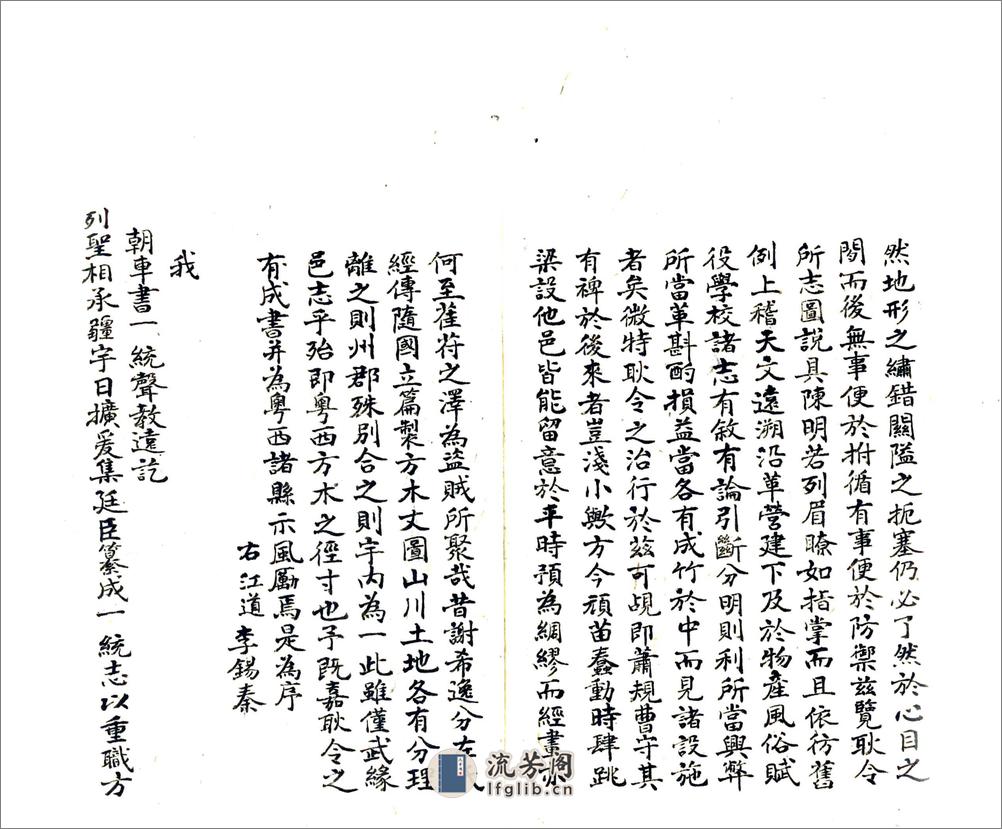 然地形之繡錯關隘之扼塞仍必了然於心目之
間而後無事便於拊循有事便於防禦茲覽耿令
所志圖說具陳明若列眉瞭如指掌而且依彷舊
例上稽天文遠溯沿革營建下及於物產風俗賦
役學校諸志有敘有論引斷分明則利所當興弊
所當革斟酌損益當各有成竹於中而見諸設施
者矣微特耿令之治行於茲可覘即蕭規曹守其
有裨於後來者豈淺小歟方今頑苗蠢動時肆跳
梁設他邑皆能留意於平時預為綢繆而經畫
何至萑苻之澤為盜賊所聚哉昔謝希逸分左
經傳隨國立篇製方木丈圖山川土地各有分理
離之則州郡殊別合之則宇內為一此雖僅武緣
邑志乎殆即粵西方木之徑寸也予既嘉耿令之
有成書并為粵西諸縣示風勵焉是為序
右江道李錫秦
我
朝車書一統聲教遠訖
列聖相承疆宇日擴爰集廷臣纂成一統志以重職方
流芳阁
lfglib.cn